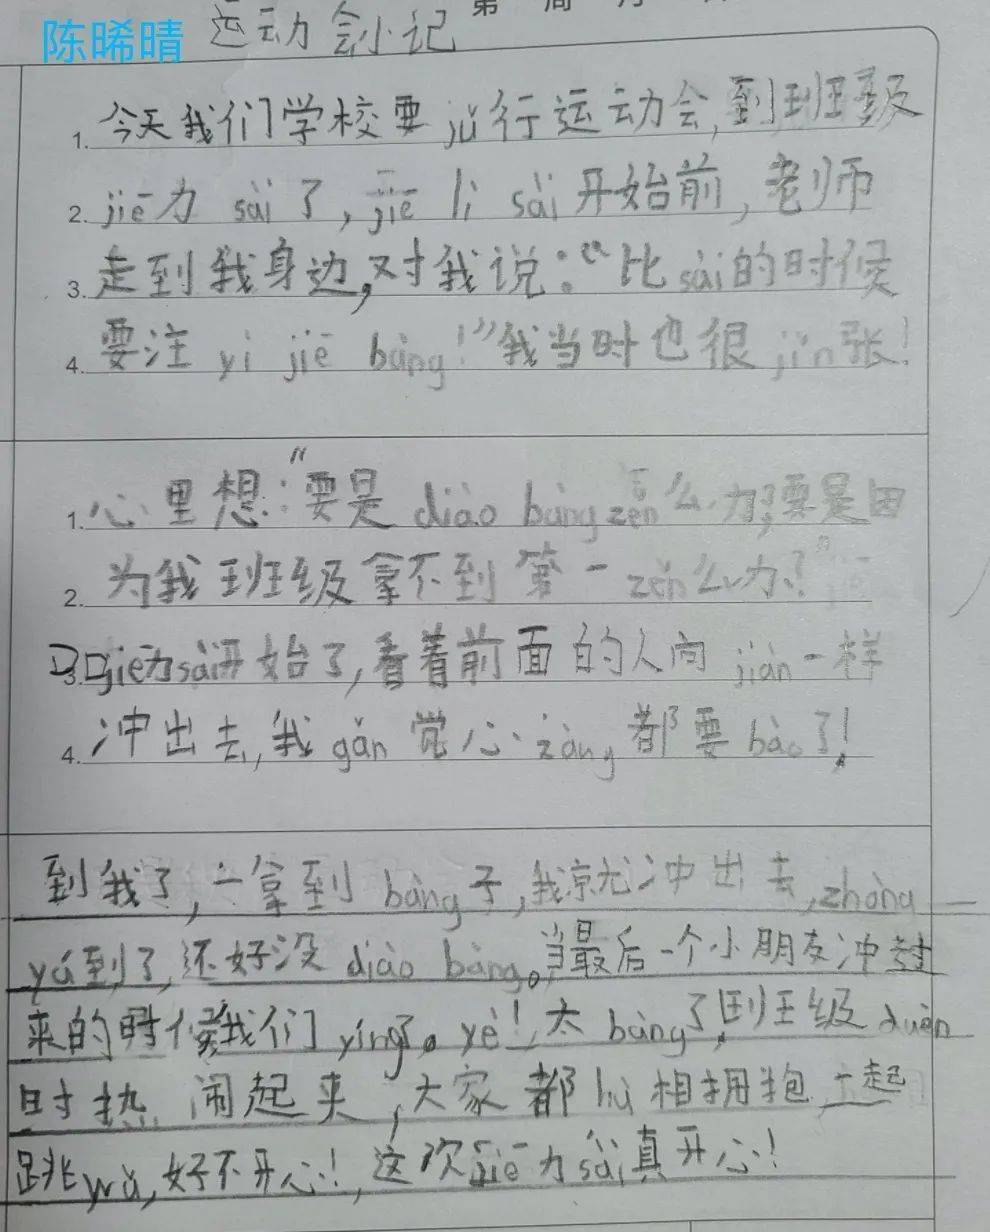 第 周 月
陈晞晴 运动会小记
1. 今天我们学校要jǔ行运动会,到班级
2. jiē力sài了,jiē lì sài开始前,老师
3. 走到我身边,对我说:“比sài的时候
4. 要注yì jiē bàng!”我当时也很jǐn张!
1. 心里想:“要是diào bàng zěn么办?要是因
2. 为我班级拿不到第一zěn么办?”
3. jiē力sài开始了,看着前面的人向jiàn一样
4. 冲出去,我gǎn觉心zàng都要bào了!
到我了,一拿到bàng子,我就冲出去,zhōng
yú到了,还好没diào bàng。当最后一个小朋友冲过
来的时候我们yíng了。yè!太bàng了,班级duàn
时热闹起来,大家都hù相拥抱,一起
跳yuè,好不开心!这次jiē力sài真开心!